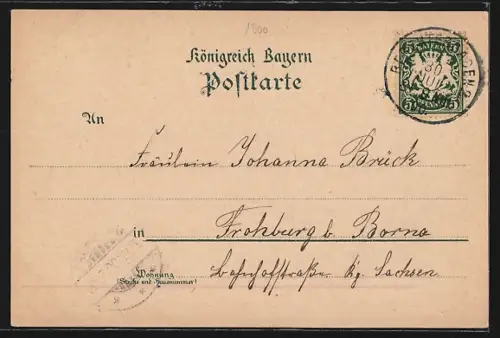 1900
Königreich Bayern
Postkarte
BAYERN
5 5
5 5
30
JUL
An
Fräulein Johanna Brück
in
Frohburg b. Borna
Wohnung
(Straße und Hausnummer)
Bahnhofstraße Kg. Sachsen